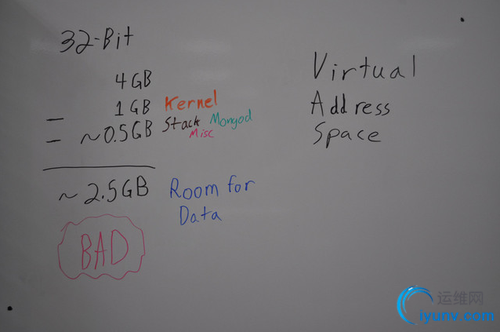 32-Bit
4GB
- 1GB Kernel
- ~0.5GB Stack Mongod
Misc
~2.5GB Room for
Data
BAD
Virtual
Address
Space
运维网
iyunv.com